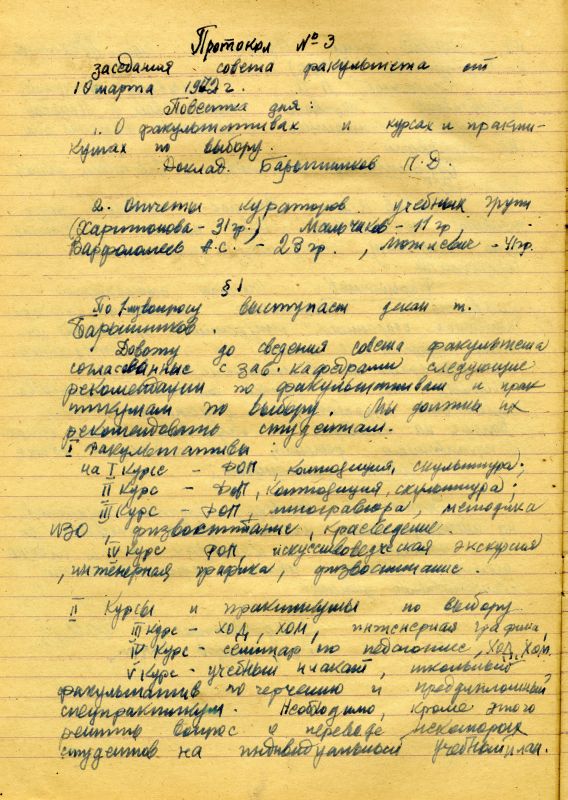 Протокол № 3
заседания совета факультета от
10 марта 1972 г.
Повестка дня:
1. О факультативах и курсах и практи-
кумах по выбору.
Доклад. Барышников П.Д.
2. Отчеты кураторов учебных групп
(Харитонова – 31 гр.) Мальчиков – 11 гр,
Варфоломеев А.С. – 23 гр., – 41 гр.
§ 1
По 1-му вопросу выступает декан т.
Барышников.
Довожу до сведения совета факультета
согласованные с зав. кафедрами следующие
рекомендации по факультативам и прак
тикумам по выбору. Мы должны их
рекомендовать студентам.
I Факультативы:
на I курсе – ФОП, композиция, скульптура;
II курс – ФОП, композиция, скульптура;
III курс – ФОП, линогравюра, методика
ИЗО, физвоспитание, краеведение.
IV курс ФОП, искусствоведческая экскурсия
, инженерная графика, физвоспитание.
II Курсы и практикумы по выбору
III курс – ХОД, ХОМ, инженерная графика,
IV курс – семинар по педагогике, ХОД, ХОМ.
V курс – учебный плакат, школьный
факультатив по черчению и преддипломный
спецпрактикум. Необходимо, кроме этого
решить вопрос о переводе некоторых
студентов на индивидуальный учебный план.